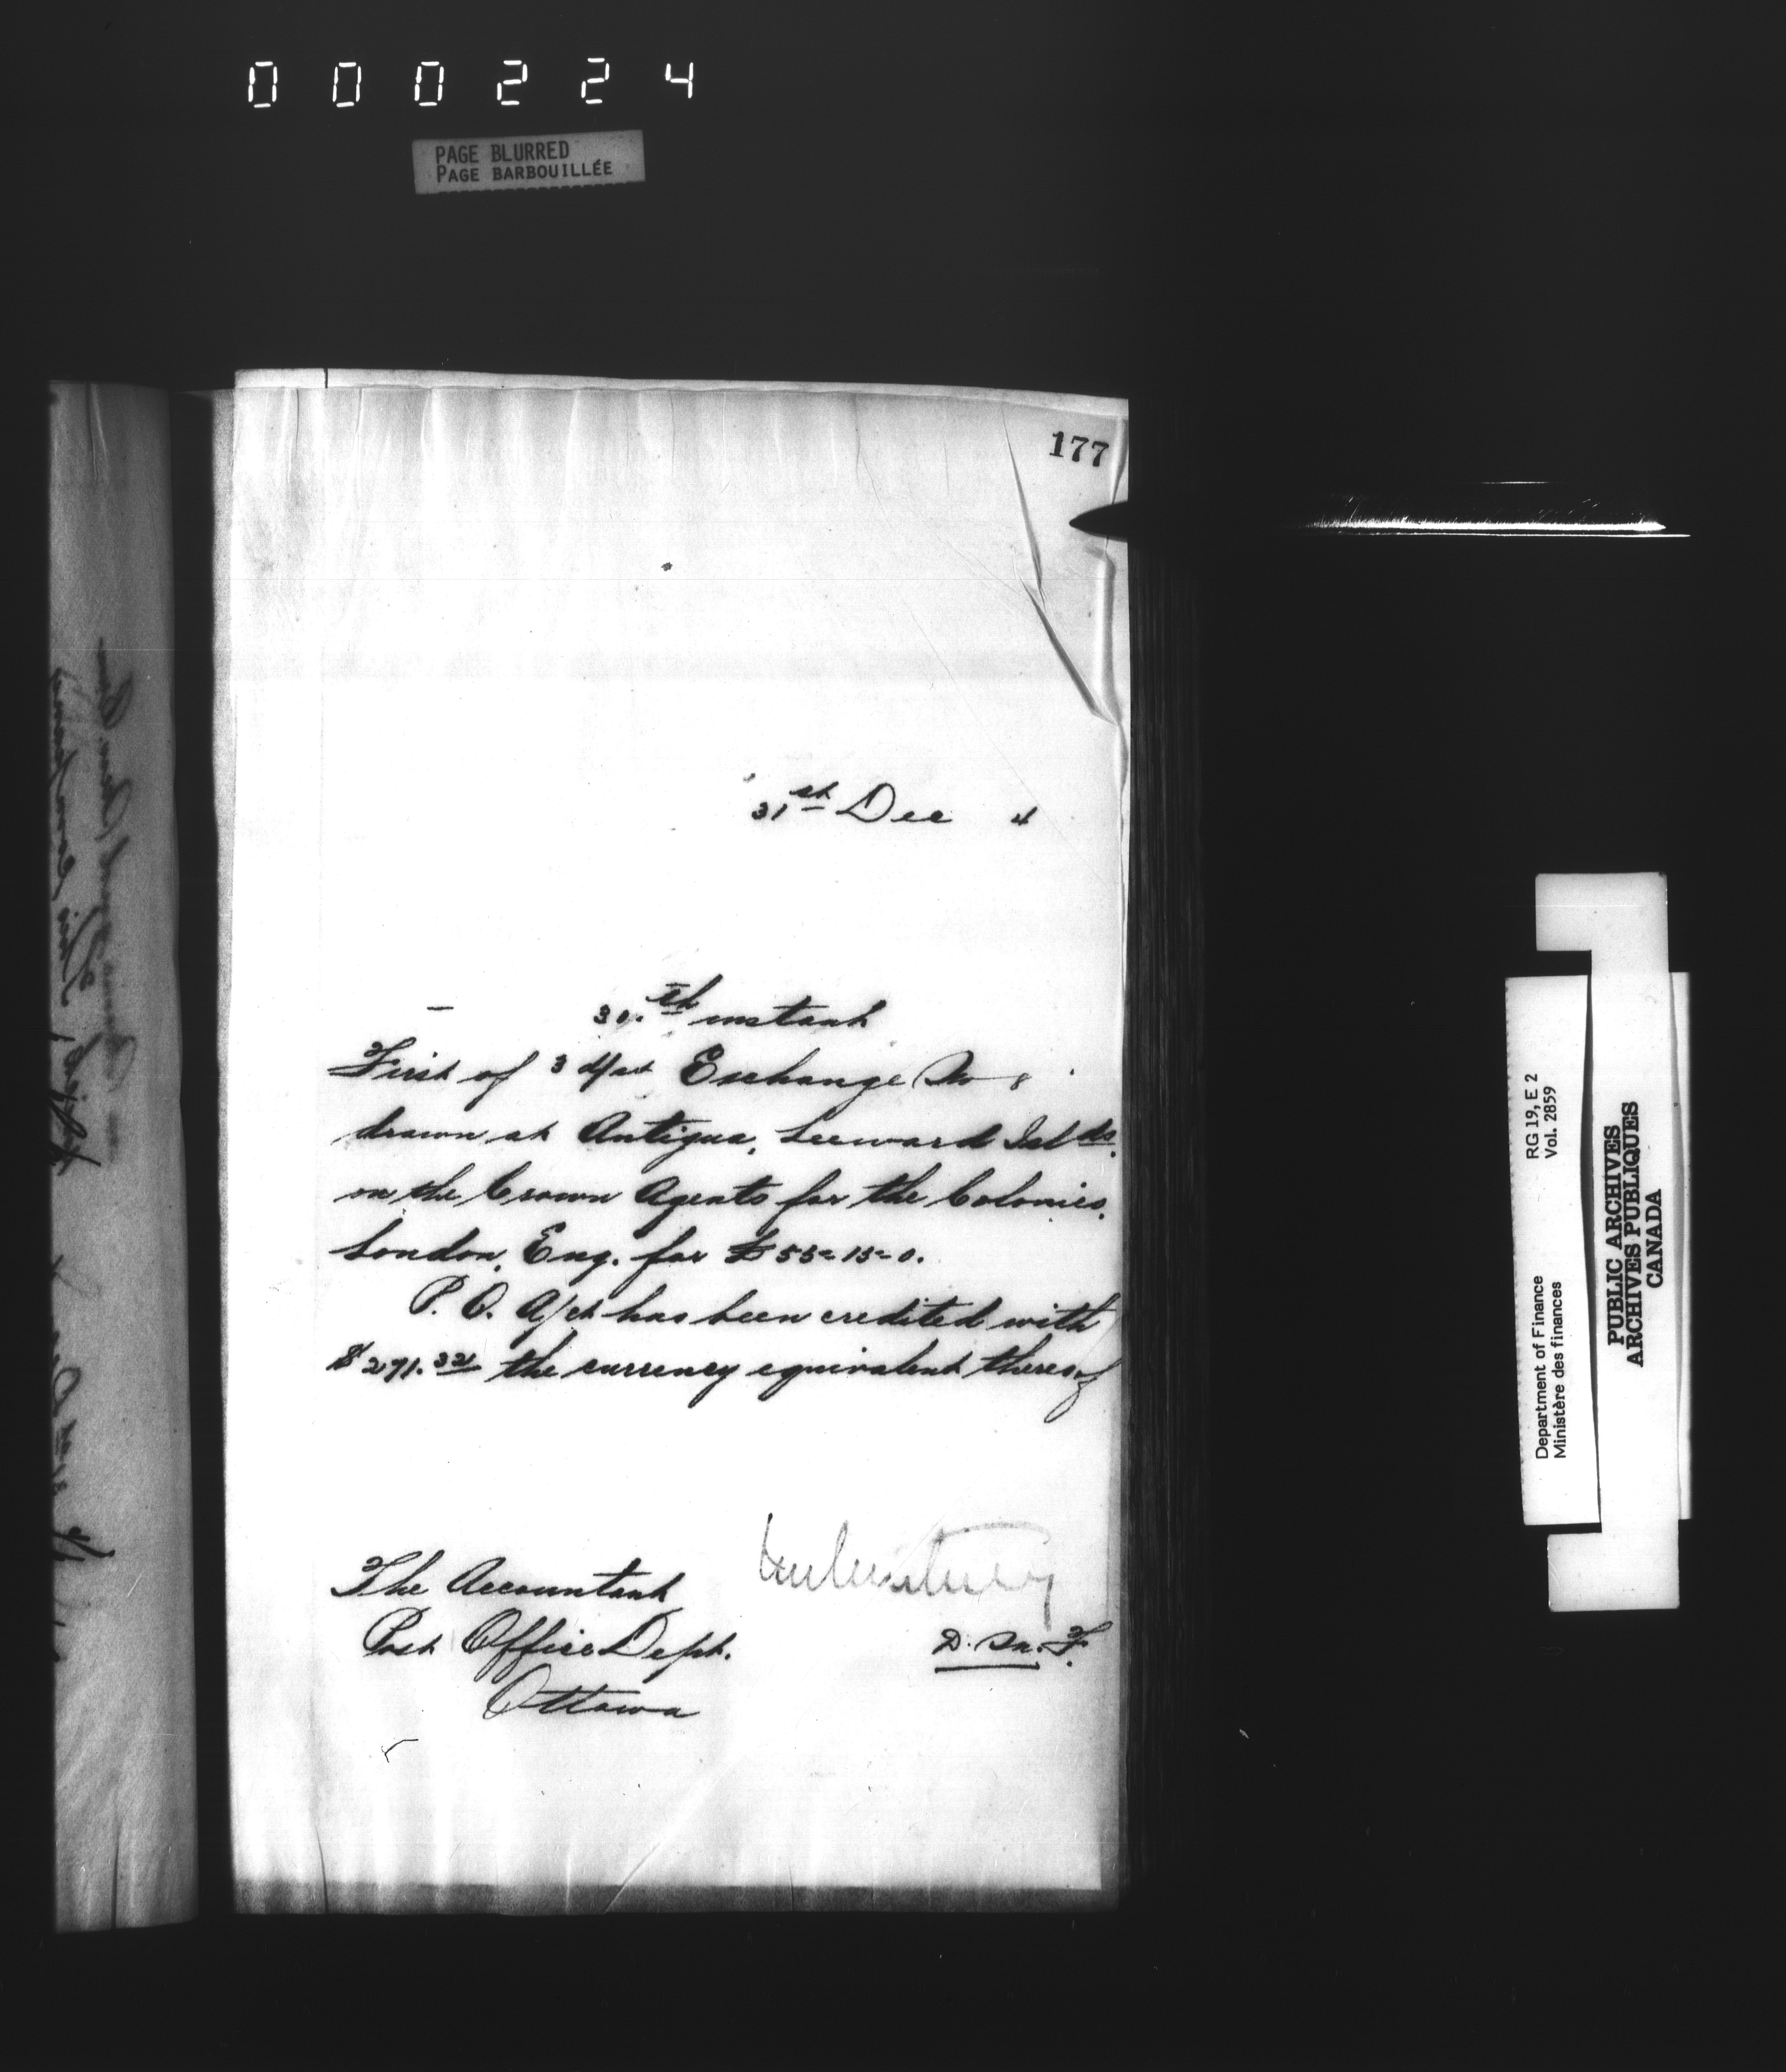 000224
PAGE BLURRED
PAGE BARBOUILLÉE
177
31st Dec 4
30.th instant
First of 3 d/st Exchange No 8
drawn at Antigua, Leeward Isl ds.
on the Crown Agents for the Colonies,
London, Eng. for £55-15-0.
P. O. A/ct has been credited with
$271.32 the currency equivalent thereof
The Accountant
Post Office Dept.
Ottawa
D. M. F.
RG 19, E 2
Vol. 2859
Department of Finance
Ministère des finances
PUBLIC ARCHIVES
ARCHIVES PUBLIQUES
CANADA